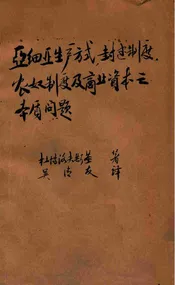 亞細亞生产方式、封建制度、
农奴制度及商业资本之
本质问题
杜博洛夫斯基 著
吳清友 譯